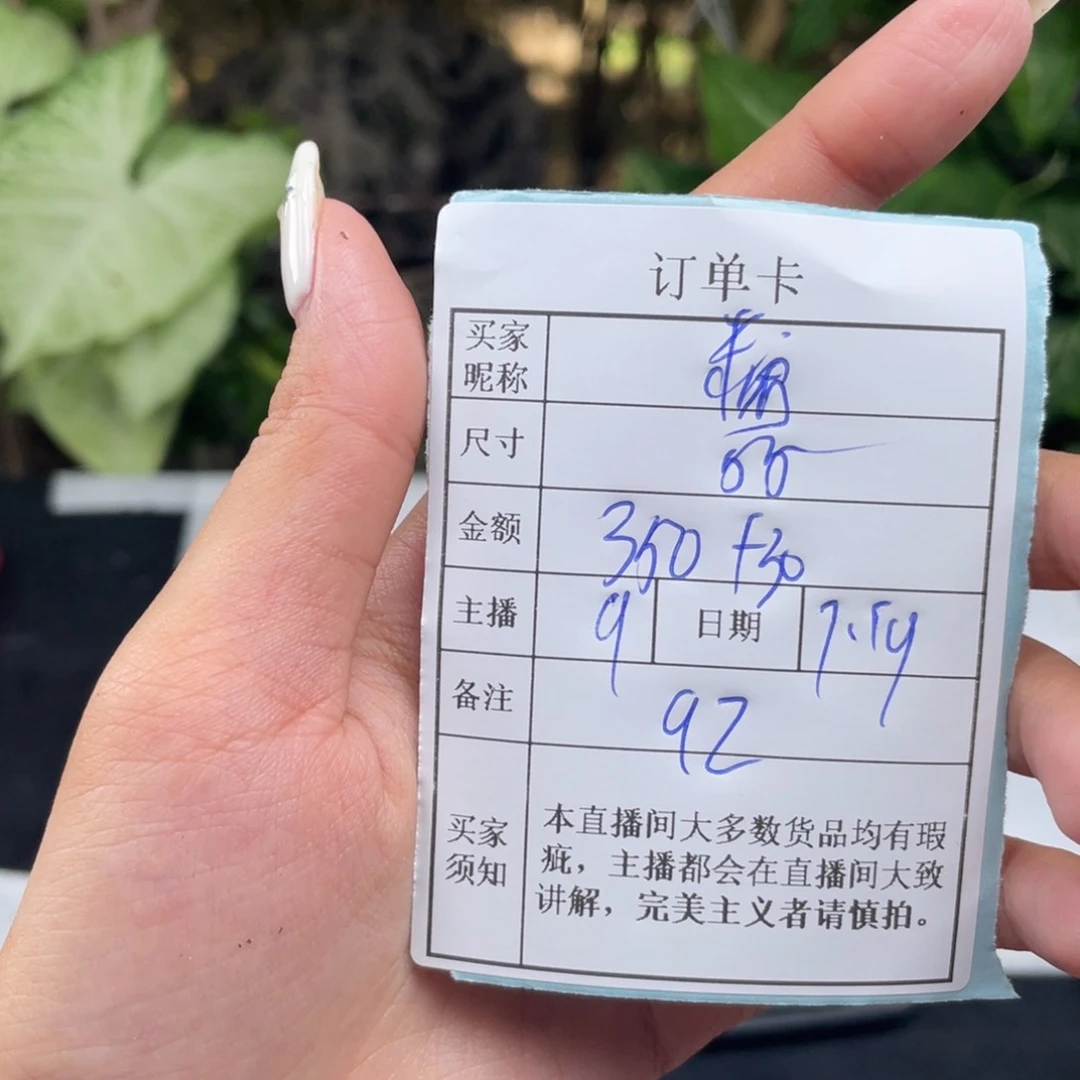 订单卡
买家
昵称
尺寸 55
金额 350 +30
主播 9 日期 7.19
备注 92
买家
须知
本直播间大多数货品均有瑕
疵，主播都会在直播间大致
讲解，完美主义者请慎拍。